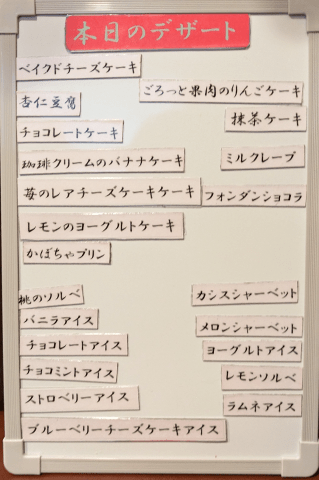 本日のデザート
ベイクドチーズケーキ
ごろっと果肉のりんごケーキ
杏仁豆腐
抹茶ケーキ
チョコレートケーキ
珈琲クリームのバナナケーキ
ミルクレープ
苺のレアチーズケーキケーキ
フォンダンショコラ
レモンのヨーグルトケーキ
かぼちゃプリン
桃のソルベ
カシスシャーベット
バニラアイス
メロンシャーベット
チョコレートアイス
ヨーグルトアイス
チョコミントアイス
レモンソルベ
ストロベリーアイス
ラムネアイス
ブルーベリーチーズケーキアイス